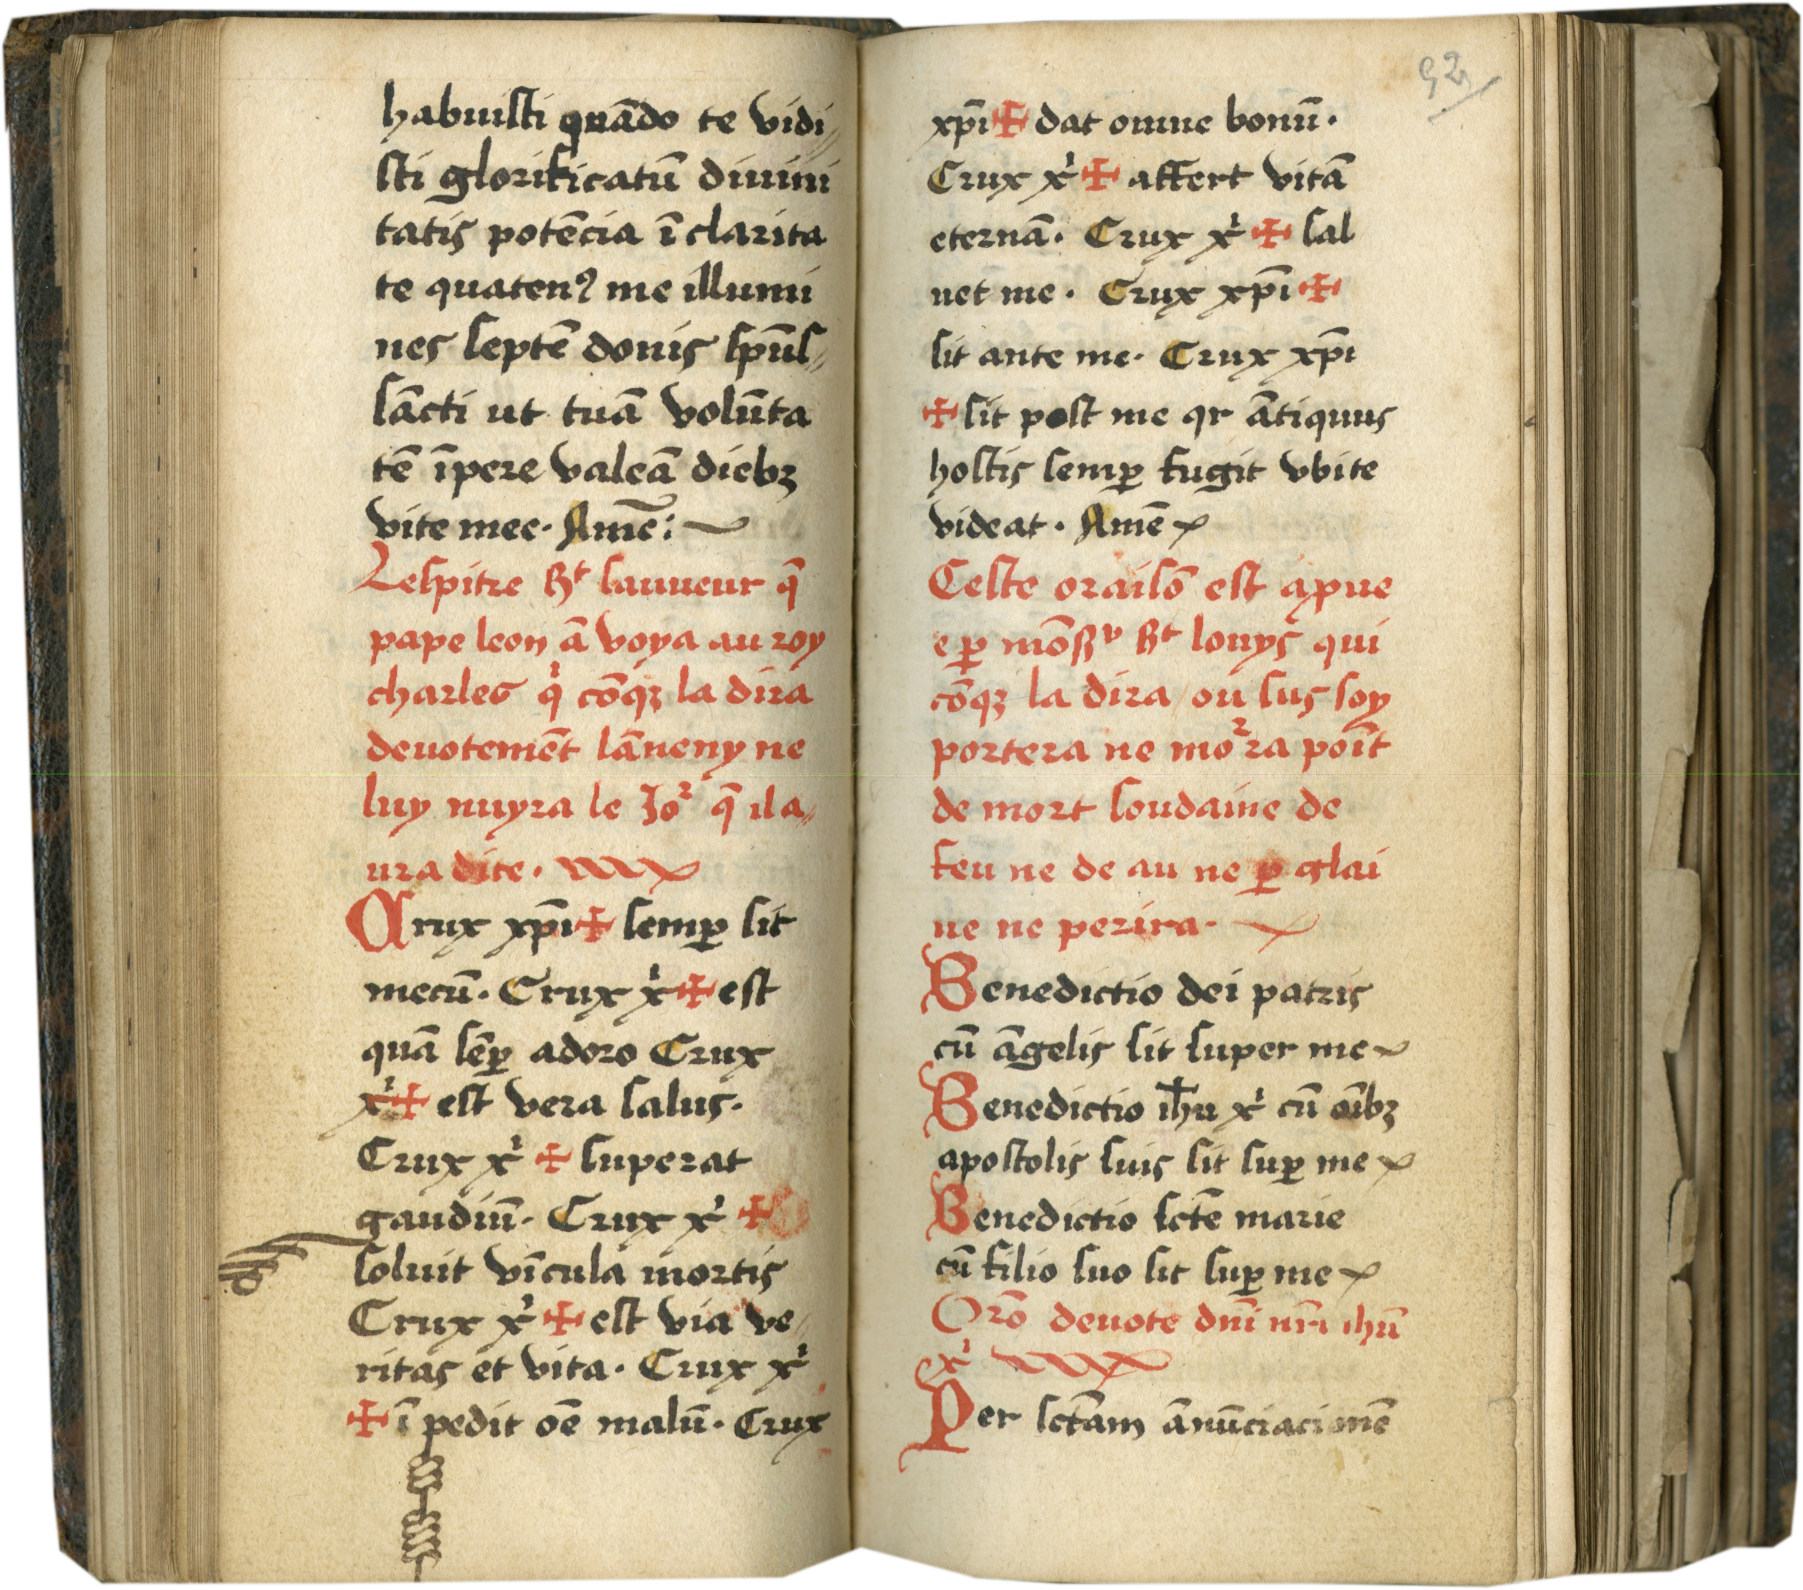 habuisti quādo te vidi
sti glorificatū diuini
tatis potēcia ī clarita
te quatenꝰ me illumi
nes septē donis spūs
sācti ut tuā volūta
tē īpere valeā diebꝫ
vite mee. Amē:
Lespitre st sauueur q̄
pape leon ā voya au roy
charles q̇ cōqꝫ la dira
deuotemēt lāneny ne
luy nuyra le Ioʳ q̄ il a
ura dite.
Crux xp̄i ✠ semꝑ sit
mecū. Crux xⁱ ✠ est
quā sēꝑ adoro Crux
xⁱ ✠ est vera salus.
Crux xⁱ ✠ superat
gaudiū. Crux xⁱ ✠
soluit vīcula mortis
Crux xⁱ ✠ est via ve
ritas et vita. Crux xⁱ
✠ ī pedit oē malū. Crux
92
xp̄i ✠ dat omne bonū.
Crux xⁱ ✠ affert vitā
eternā. Crux xⁱ ✠ sal
uet me. Crux xp̄i ✠
sit ante me. Crux xp̄i
✠ sit post me qr ātiquus
hostis semꝑ fugit vbi te
videat. Amē
Ceste oraisō est apue
e ꝑ mōsʳ st louys qui
cōqꝫ la dira ou sus soy
portera ne moʳra poīt
de mort soudaine de
feu ne de au ne ꝑ glai
ue ne perira.
Benedictio dei patris
cū āgelis sit super me
Benedictio ihu xⁱ cū oībꝫ
apostolis suis sit suꝑ me
Benedictio sctē marie
cū filio suo sit suꝑ me
Orō deuote dn̄i nr̄i ihū
xⁱ
Per sctam ānūciacionē